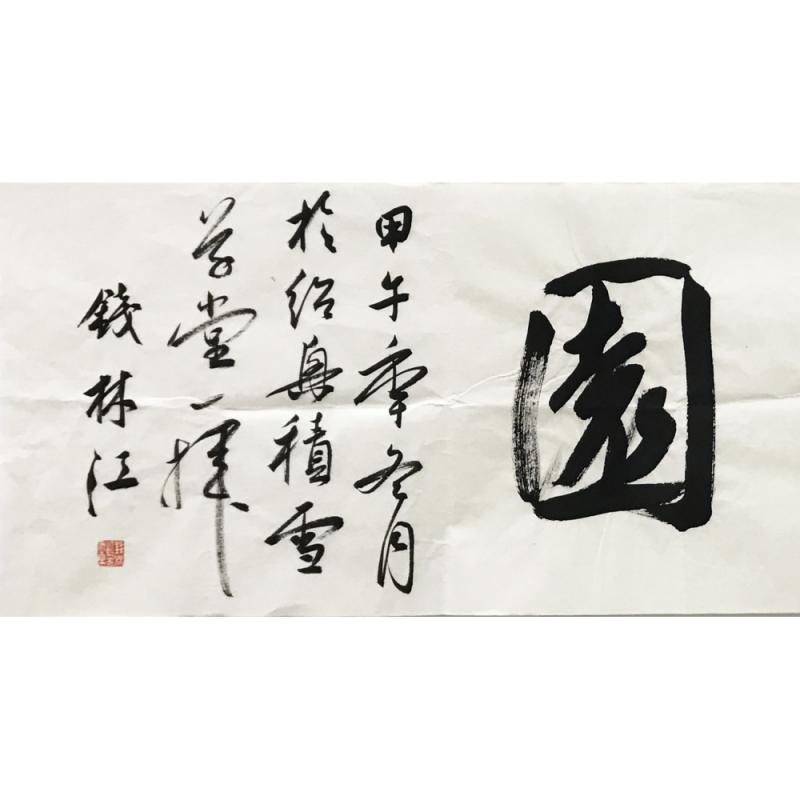 園
甲午年冬月
於紹興積雪
草堂一揮
錢林江